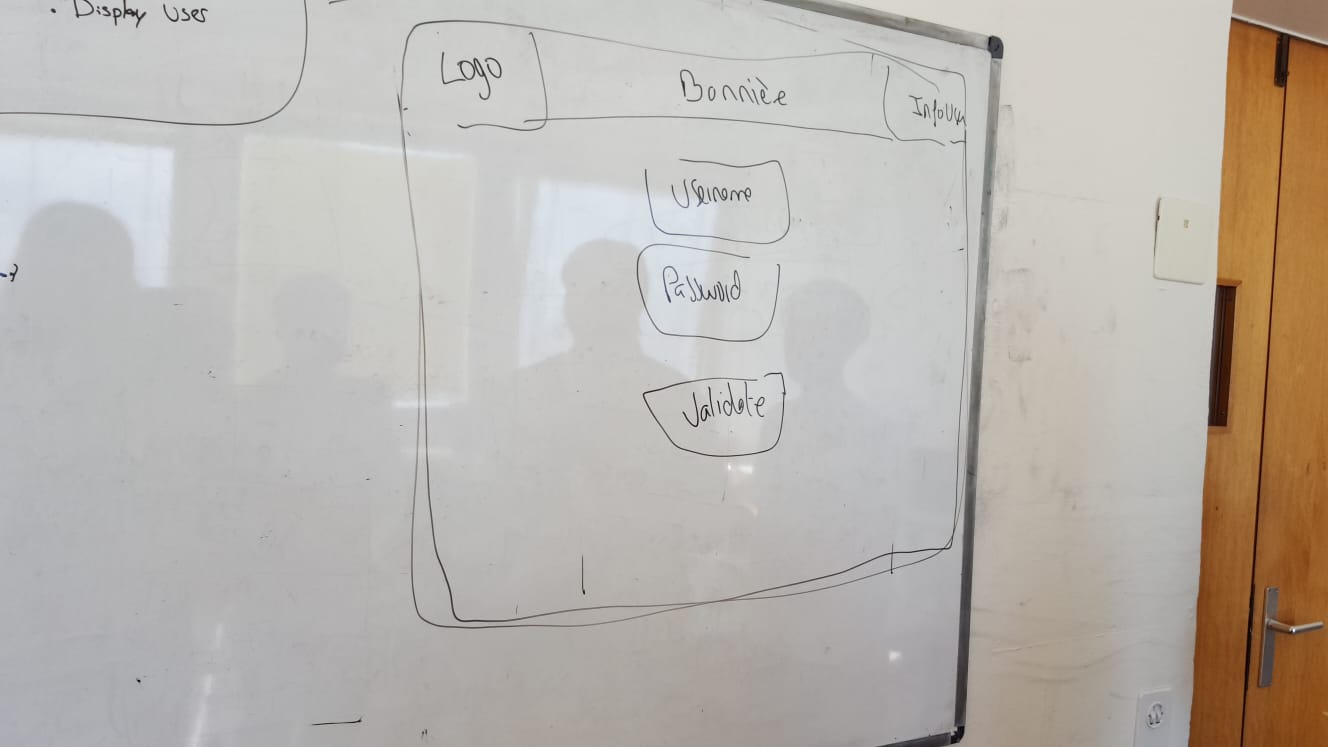 · Display User
Logo
Bannière
Username
Password
Validate